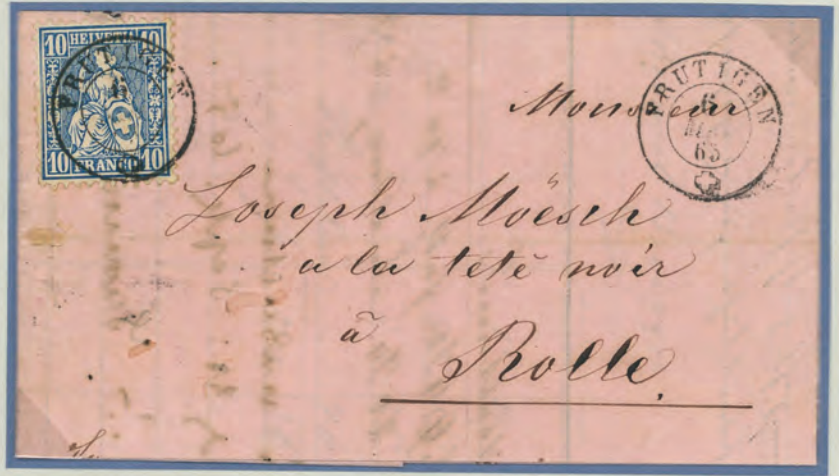 10 HELVETIA 10
10 FRANCO 10
FRUTIGEN
6
FRUTIGEN
6
65
Monsieur
Joseph Möesch
a la teté noir
à
Rolle